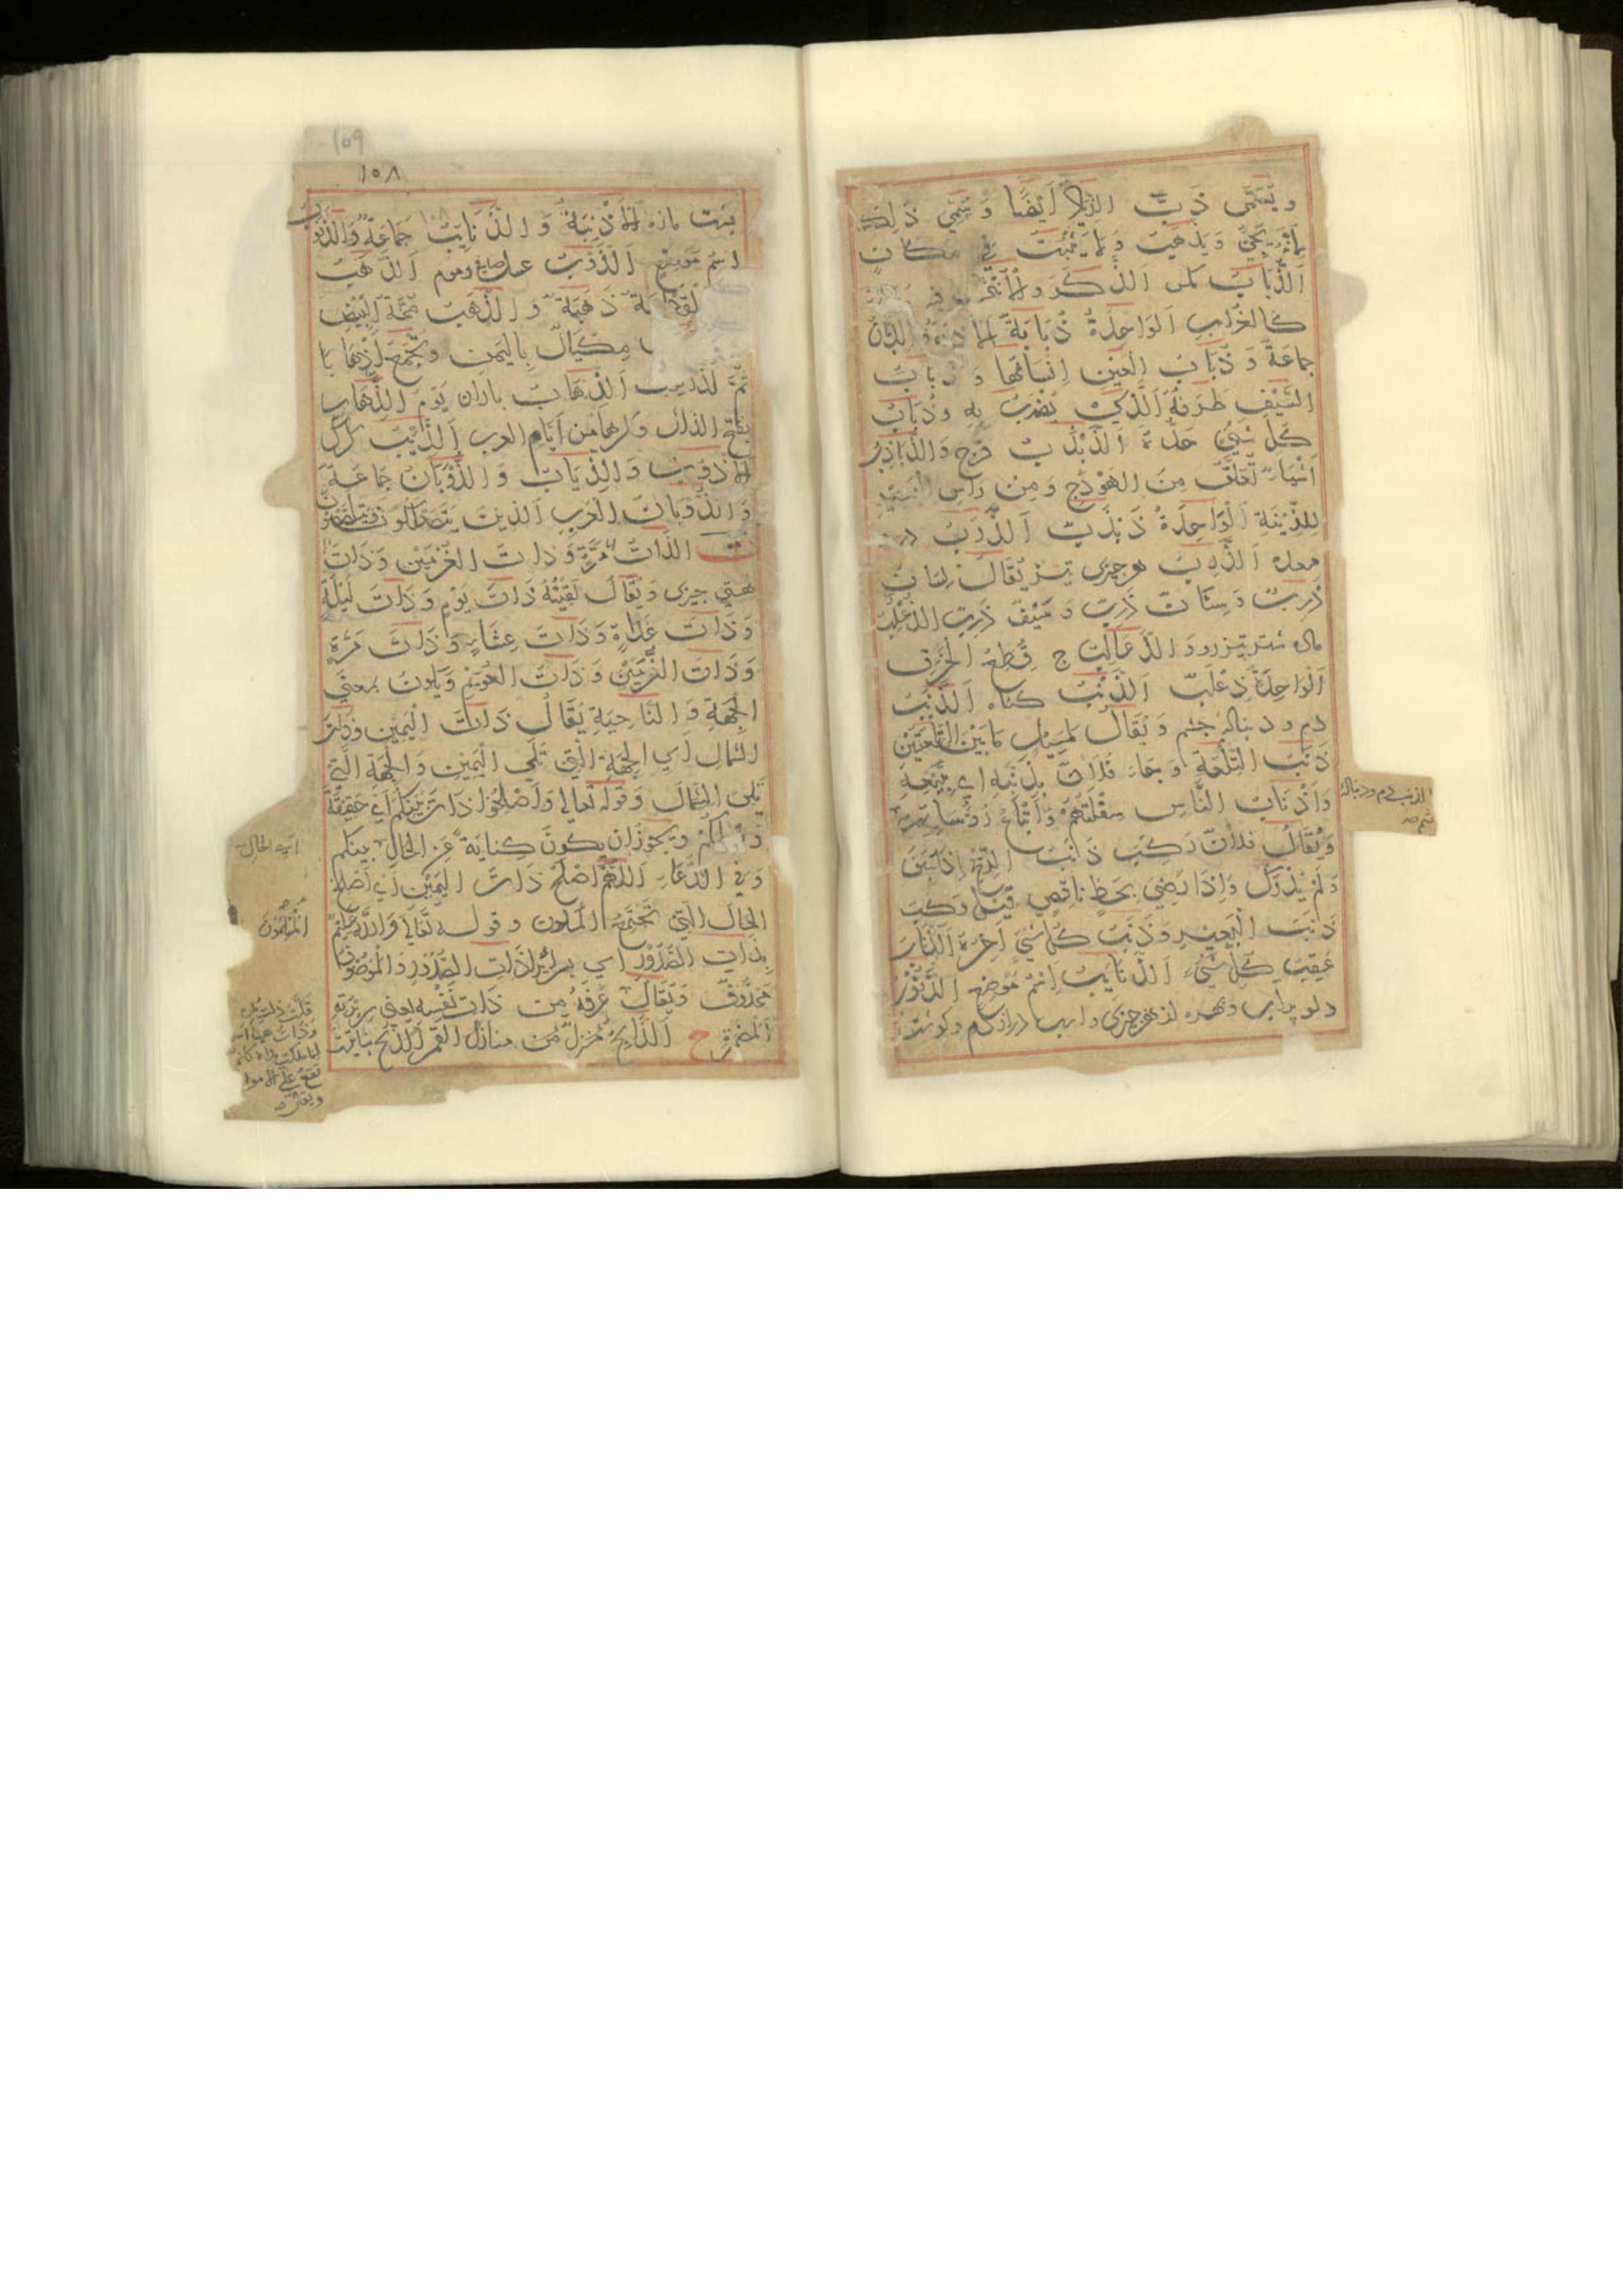 ويسمى ذب الرياد ايضا وسمي ذلك
لانه يجئ ويذهب ولا يثبت في مكان
الذباب مكس الذكر والانثى فيه
كالغراب الواحدة ذبابة الاذبة والذبان
جماعة وذباب العين انسانها وذباب
السيف طرفه الذي يضرب به وذباب
كل شيئ حده الذبذب فرج والذباذب
اشياء تعلق من الهودج ومن راس البعير
للزينة الواحدة ذبذب الذرب درد
معده الذرب هر چیزی تیز يقال لسان
ذرب وسنان ذرب وسيف ذرب الذعلب
ماده شتر تیزرو والذعالب ج قطع الخرق
الواحدة ذعلب الذنب کناه الذنب
دم ودنباله چشم ويقال لمسيل ما بين التلعتين
ذنب التلعة وجاء فلان بذنبه اي بتبعه
واذناب الناس سفلتهم واتباع رؤسائهم
ويقال فلان ركب ذنب الريح اذا سبق
ولم يدرك واذا رضي بحظ ناقص قيل ركب
ذنب البعير وذنب كل شئ اخره الذناب
عقب كل شيء الذنايب اسم موضع الذنوب
دلو پرآب وبهره از هر چیزی واسب درازدم وکوشت
الذنب دم ودنباله
چشم صح
١٠٩
١٠٨
پشت مازه الاذنبة والذنايب جماعة والذنوب
اسم موضع الذوب عسل صافي وموم الذهب
زر لقطعة ذهبة والذهب محة البيض
مكيال باليمن ويجمع اذهابا
ثم اذاهيب الذهاب باران يوم الذهاب
بفتح الذال وكرها من ايام العرب الذئب کرك
الاذؤب والذياب والذؤبان جماعة
وذؤبان العرب الذين يتصعلكون ويتلصصون
ت الذات مرة وذات العزمين وذات
هستی چیزی ويقال لقيته ذات يوم وذات ليلة
وذات غداة وذات عشاء وذات مرة
وذات الزمين وذات العويم ويكون بمعنى
الجهة والناحية يقال ذات اليمين وذات
الشمال اي الجهة التي تلي اليمين والجهة التي
تلي الشمال وقوله تعالى واصلحوا ذات بينكم اي حقيقة
وصلكم ويجوز ان يكون كناية عن الحال بينكم
وفي الدعاء اللهم اصلح ذات البين اي اصلح
الحال التي تجتمع المسلمون وقوله تعالى والله عليم
بذات الصدور اي بسرائر لذات الصدور والموصوف
محذوف ويقال عرفه من ذات نفسه يعني سريرته
المضمرة ح الذابح منزل من منازل القمر الذبح بنايت
اي الحال
المسلمون
قلت ذات